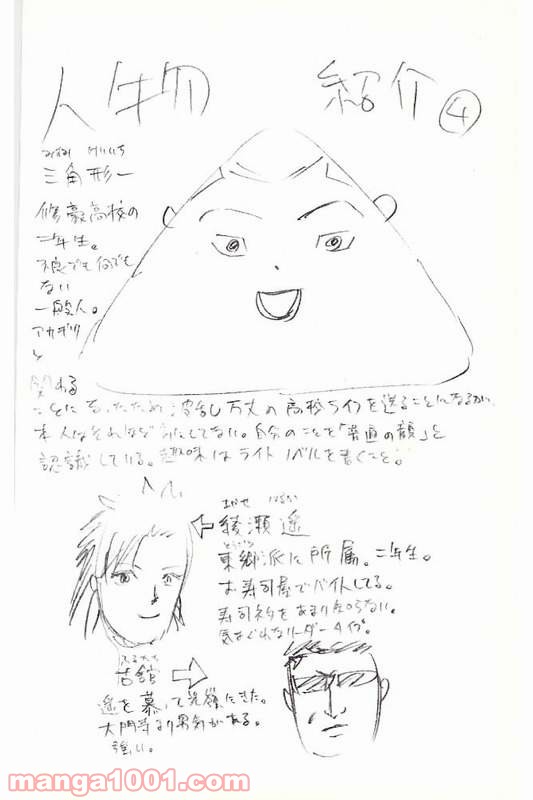 人物 紹介④
三角形一
修豪高校の
二年生。
不良でも何でも
ない
一般人。
アカギリ
と
関わる
ことになったため波乱万丈の高校ライフを送ることになるが、
本人はそれほど気にしてない。自分のことを「普通の顔」と
認識している。趣味はライトノベルを書くこと。
あやせ はるか
綾瀬遥
とうごう
東郷派に所属。二年生。
お寿司屋でバイトしてる。
寿司ネタをあまり知らない。
気まぐれなリーダータイプ。
ふるたち
古舘
遥を慕って
大門寺より男気がある。
強い。
manga1001.com